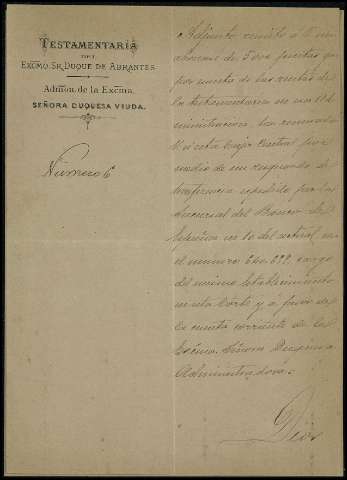 TESTAMENTARIA
DEL
EXCMO. SR. DUQUE DE ABRANTES
Admon. de la Excma.
SEÑORA DUQUESA VIUDA.
Número 6
Adjunto remito á V. un
de pesetas que
por cuenta de las rentas de
la testamentaria de mi Ad-
ministracion, ha
á esta Caja Central por
medio de un resguardo de
trasferencia espedido por la
Sucursal del Banco de
España en 10 del actual, con
el número 640.699, cargo
del mismo Establecimiento
en esta Corte y á favor de
la cuenta corriente de la
Excma. Señora Duquesa
Administradora.
Dios